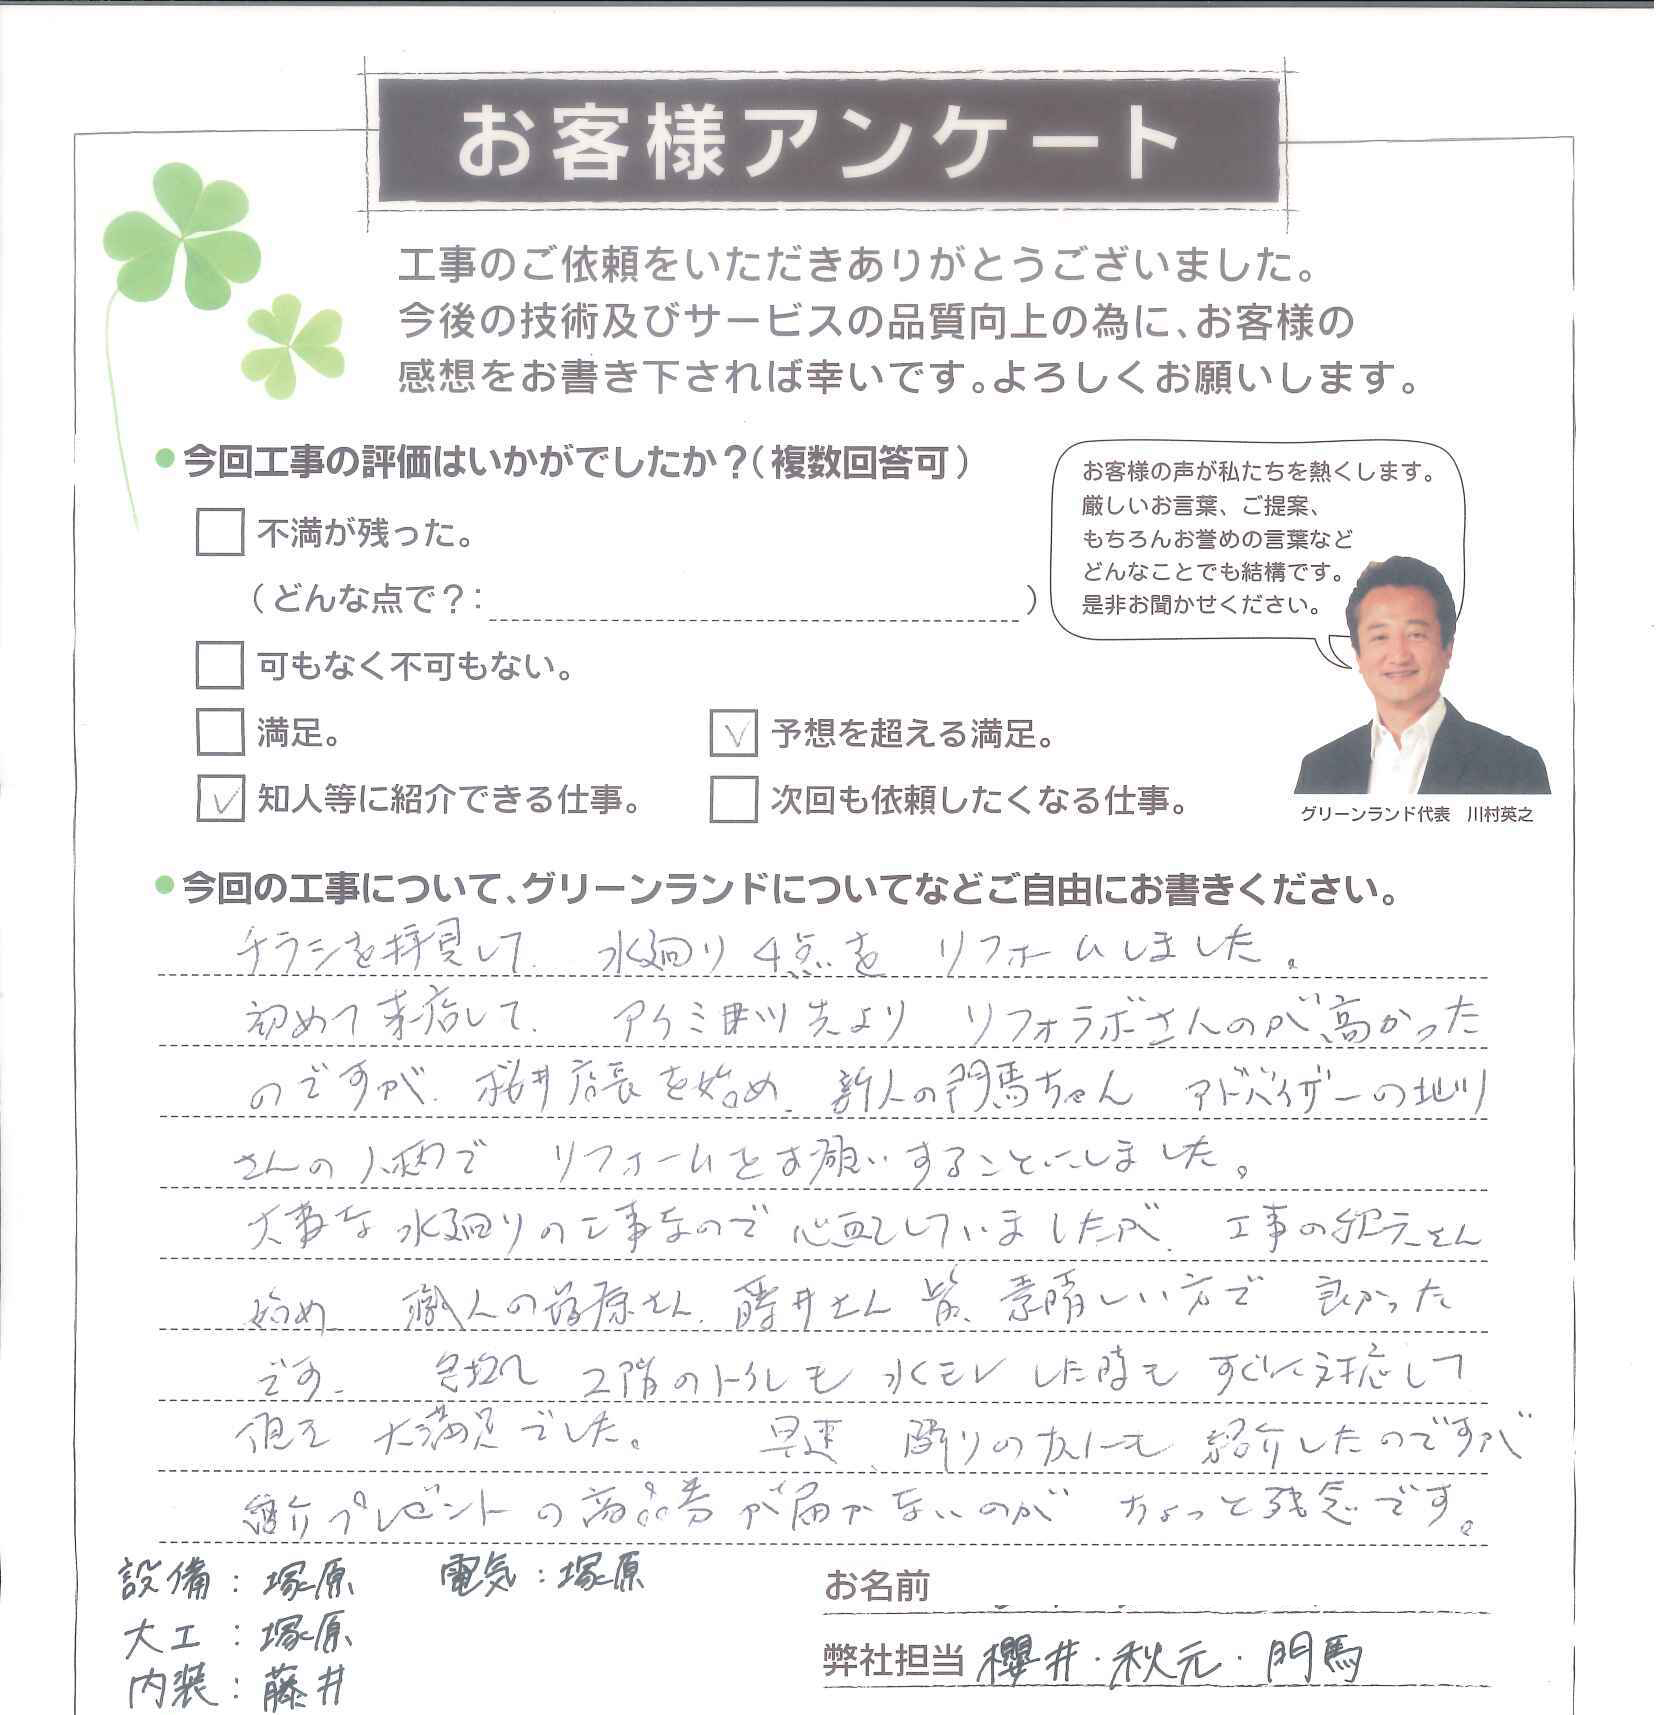 お客様アンケート
工事のご依頼をいただきありがとうございました。
今後の技術及びサービスの品質向上の為に、お客様の
感想をお書き下されば幸いです。よろしくお願いします。
今回工事の評価はいかがでしたか？（複数回答可）
不満が残った。
（どんな点で？：　　　）
可もなく不可もない。
満足。
予想を超える満足。
知人等に紹介できる仕事。
次回も依頼したくなる仕事。
お客様の声が私たちを熱くします。
厳しいお言葉、ご提案、
もちろんお誉めの言葉など
どんなことでも結構です。
是非お聞かせください。
グリーンランド代表　川村英之
今回の工事について、グリーンランドについてなどご自由にお書きください。
チラシを拝見して、水廻り4点をリフォームしました。
初めて来店して、より リフォラボさんのが高かった
のですが、桜井店長を始め、新人の門馬ちゃん アドバイザーの
さんの人柄で リフォームをお願いすることにしました。
大事な水廻りの工事なので心配していましたが、工事の秋元さん
始め 職人の塚原さん、藤井さん皆、素晴しい方で 良かった
です。 2階のトイレも水モレした時もすぐに対応して
大満足でした。 早速、隣りの友にも紹介したのですが
紹介プレゼントの商品券が届かないのが ちょっと残念です。
設備：塚原　電気：塚原
大工：塚原
内装：藤井
お名前
弊社担当 櫻井・秋元・門馬